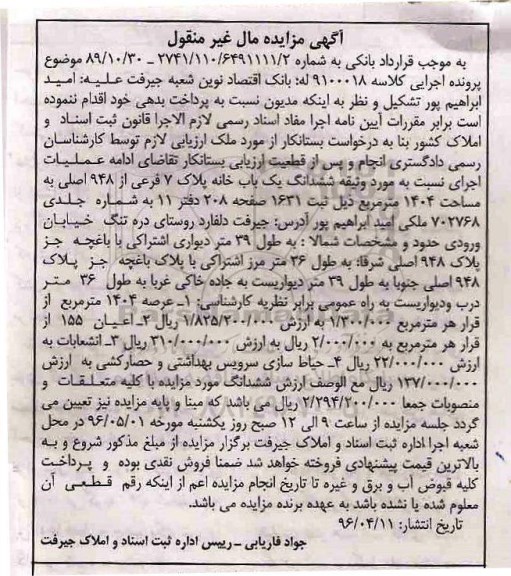 آگهی مزایده مال غیر منقول
به موجب قرارداد بانکی به شماره ۲۷۴۱/۱۱۰/۶۴۹۱۱۱۱/۲ - ۸۹/۱۰/۳۰ موضوع
پرونده اجرایی کلاسه ۹۱۰۰۰۱۸ له: بانک اقتصاد نوین شعبه جیرفت علیه: امید
ابراهیم پور تشکیل و نظر به اینکه مدیون نسبت به پرداخت بدهی خود اقدام ننموده
است برابر مقررات آیین نامه اجرا مفاد اسناد رسمی لازم الاجرا قانون ثبت اسناد و
املاک کشور بنا به درخواست بستانکار از مورد ملک ارزیابی لازم توسط کارشناسان
رسمی دادگستری انجام و پس از قطعیت ارزیابی بستانکار تقاضای ادامه عملیات
اجرای نسبت به مورد وثیقه ششدانگ یک باب خانه پلاک ۷ فرعی از ۹۴۸ اصلی به
مساحت ۱۴۰۴ مترمربع ذیل ثبت ۱۶۳۱ صفحه ۲۰۸ دفتر ۱۱ به شماره جلدی
۷۰۲۷۶۸ ملکی امید ابراهیم پور آدرس: جیرفت دلفارد روستای دره تنگ خیابان
ورودی حدود و مشخصات شمالا : به طول ۳۹ متر دیواری اشتراکی با باغچه جز
پلاک ۹۴۸ اصلی شرقا: به طول ۳۶ متر مرز اشتراکی با پلاک باغچه جز پلاک
۹۴۸ اصلی جنوبا به طول ۳۹ متر دیواریست به جاده خاکی غربا به طول ۳۶ متر
درب ودیواریست به راه عمومی برابر نظریه کارشناسی: ۱- عرصه ۱۴۰۴ مترمربع از
قرار هر مترمربع ۱/۳۰۰/۰۰۰ به ارزش ۱/۸۲۵/۲۰۰/۰۰۰ ریال ۲- اعیان ۱۵۵ از
قرار هر مترمربع به ۲/۰۰۰/۰۰۰ ریال به ارزش ۳۱۰/۰۰۰/۰۰۰ ریال ۳- انشعابات به
ارزش ۲۲/۰۰۰/۰۰۰ ریال ۴- حیاط سازی سرویس بهداشتی و حصارکشی به ارزش
۱۳۷/۰۰۰/۰۰۰ ریال مع الوصف ارزش ششدانگ مورد مزایده با کلیه متعلقات و
منصوبات جمعا ۲/۲۹۴/۲۰۰/۰۰۰ ریال می باشد که مبنا و پایه مزایده نیز تعیین می
گردد جلسه مزایده از ساعت ۹ الی ۱۲ صبح روز یکشنبه مورخه ۹۶/۰۵/۰۱ در محل
شعبه اجرا اداره ثبت اسناد و املاک جیرفت برگزار مزایده از مبلغ مذکور شروع و به
بالاترین قیمت پیشنهادی فروخته خواهد شد ضمنا فروش نقدی بوده و پرداخت
کلیه قبوض آب و برق و غیره تا تاریخ انجام مزایده اعم از اینکه رقم قطعی آن
معلوم شده یا نشده باشد به عهده برنده مزایده می باشد.
تاریخ انتشار: ۹۶/۰۴/۱۱
جواد فاریابی - رییس اداره ثبت اسناد و املاک جیرفت